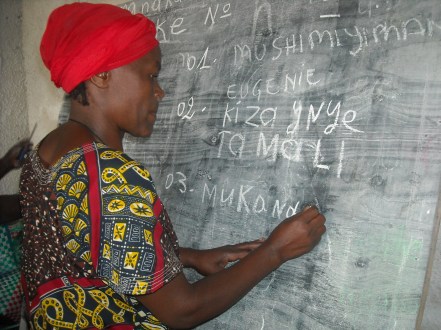 Ke No
01. MUSHIMIYIMAN
EUGENIE
02. Kiza YNYE
TAMALI
03. MUKANA